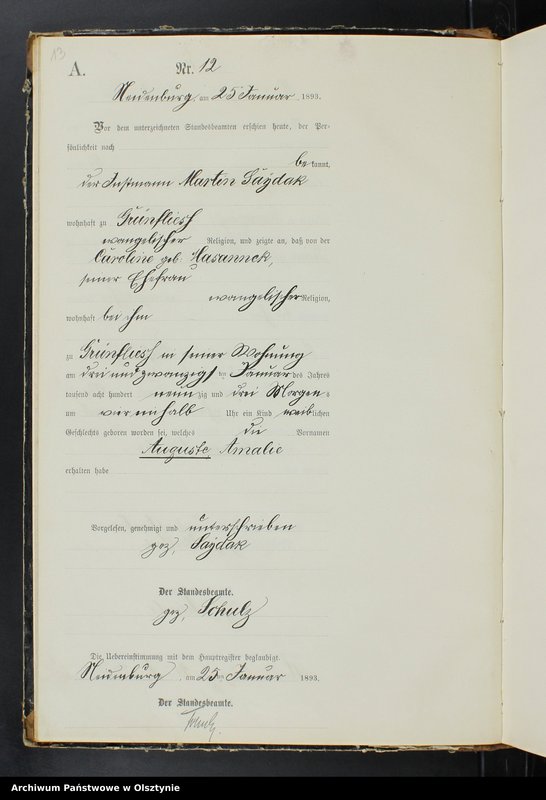 13
A. Nr. 12
Neuenburg, am 25 Januar 1893.
Vor dem unterzeichneten Standesbeamten erschien heute, der Per-
sönlichkeit nach
be kannt,
der Instmann Martin Saydak
wohnhaft zu Grünfliess
evangelischer Religion, und zeigte an, daß von der
Caroline geb.
seiner Ehefrau
evangelischer Religion,
wohnhaft bei ihm
zu Grünfliess in seiner Wohnung
am drei und zwanzigsten Januar des Jahres
tausend acht hundert neun zig und drei Morgen s
um vier einhalb Uhr ein Kind weib lichen
Geschlechts geboren worden sei, welches die Vornamen
Auguste Amalie
erhalten habe
Vorgelesen, genehmigt und unterschrieben
gez. Saydak
Der Standesbeamte.
gez. Schulz
Die Uebereinstimmung mit dem Hauptregister beglaubigt.
Neuenburg, am 25 ten Januar 1893.
Der Standesbeamte.
Schulz.
Archiwum Państwowe w Olsztynie